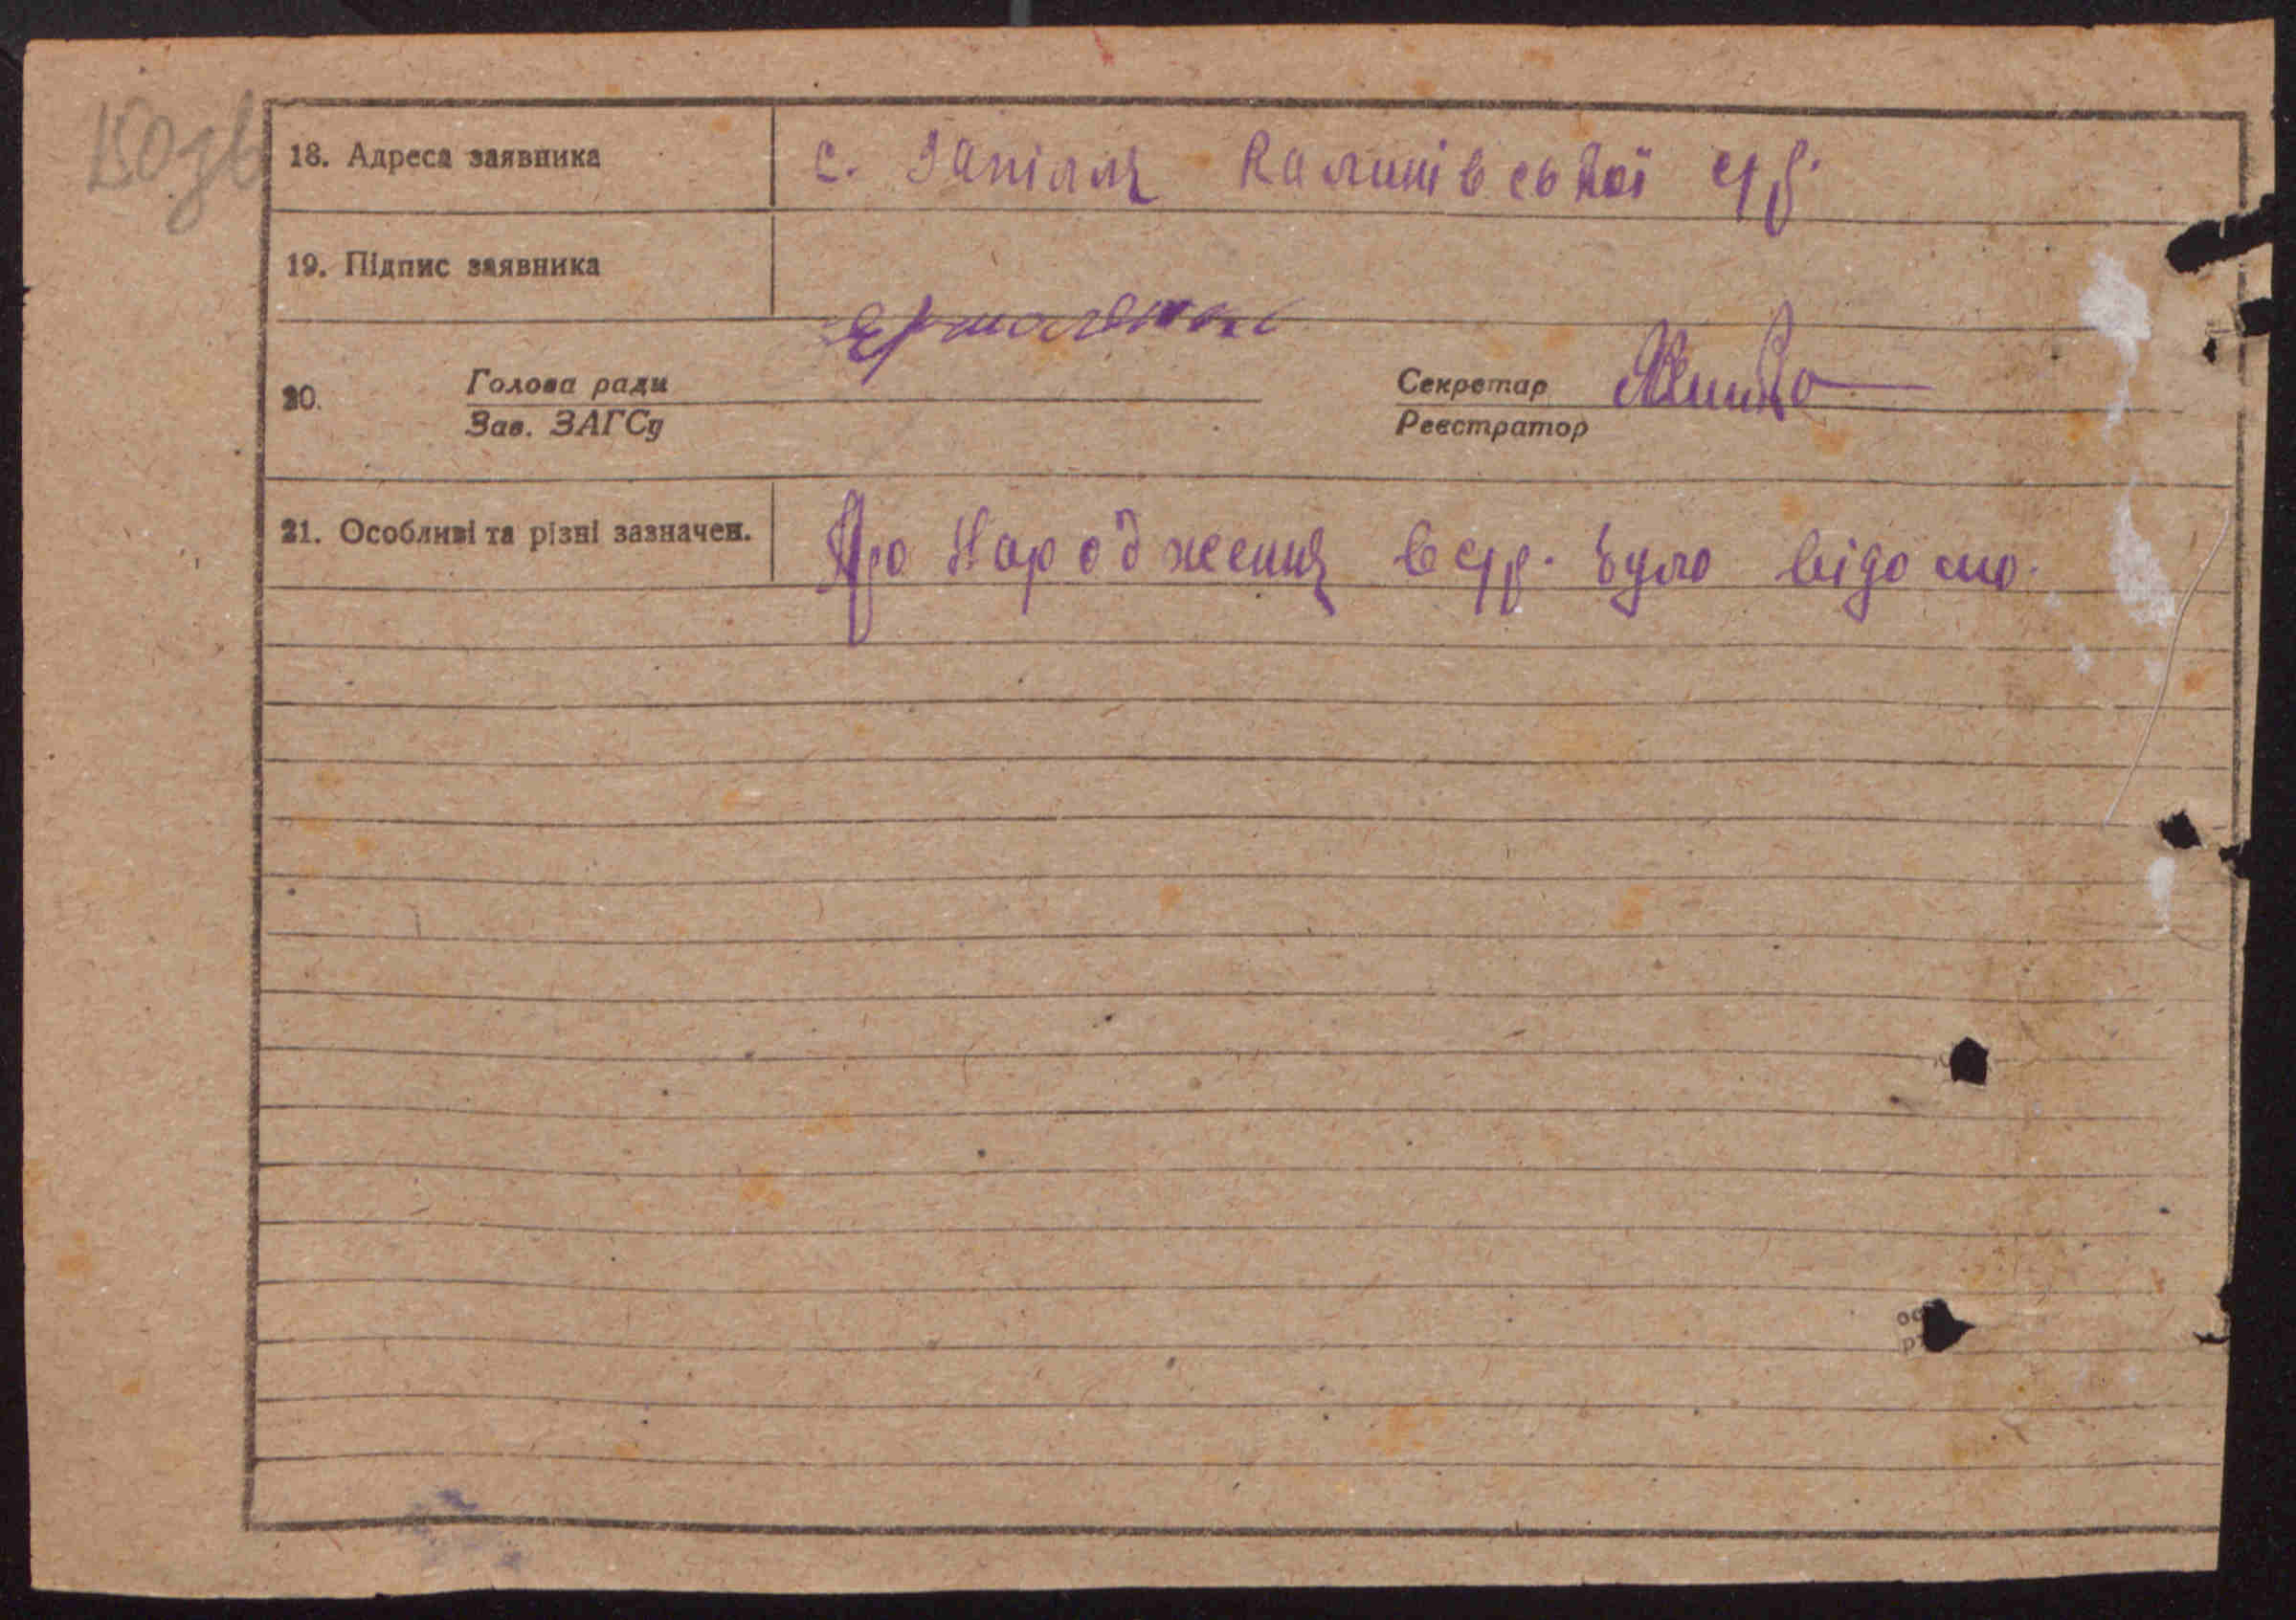 150 зв
18. Адреса заявника с. Запілля Калинівської с/р.
19. Підпис заявника
Ермоленко
20. Голова ради Секретар
Зав. ЗАГСу Реєстратор
21. Особливі та різні зазначен. Про Народження в с/р. було відомо.